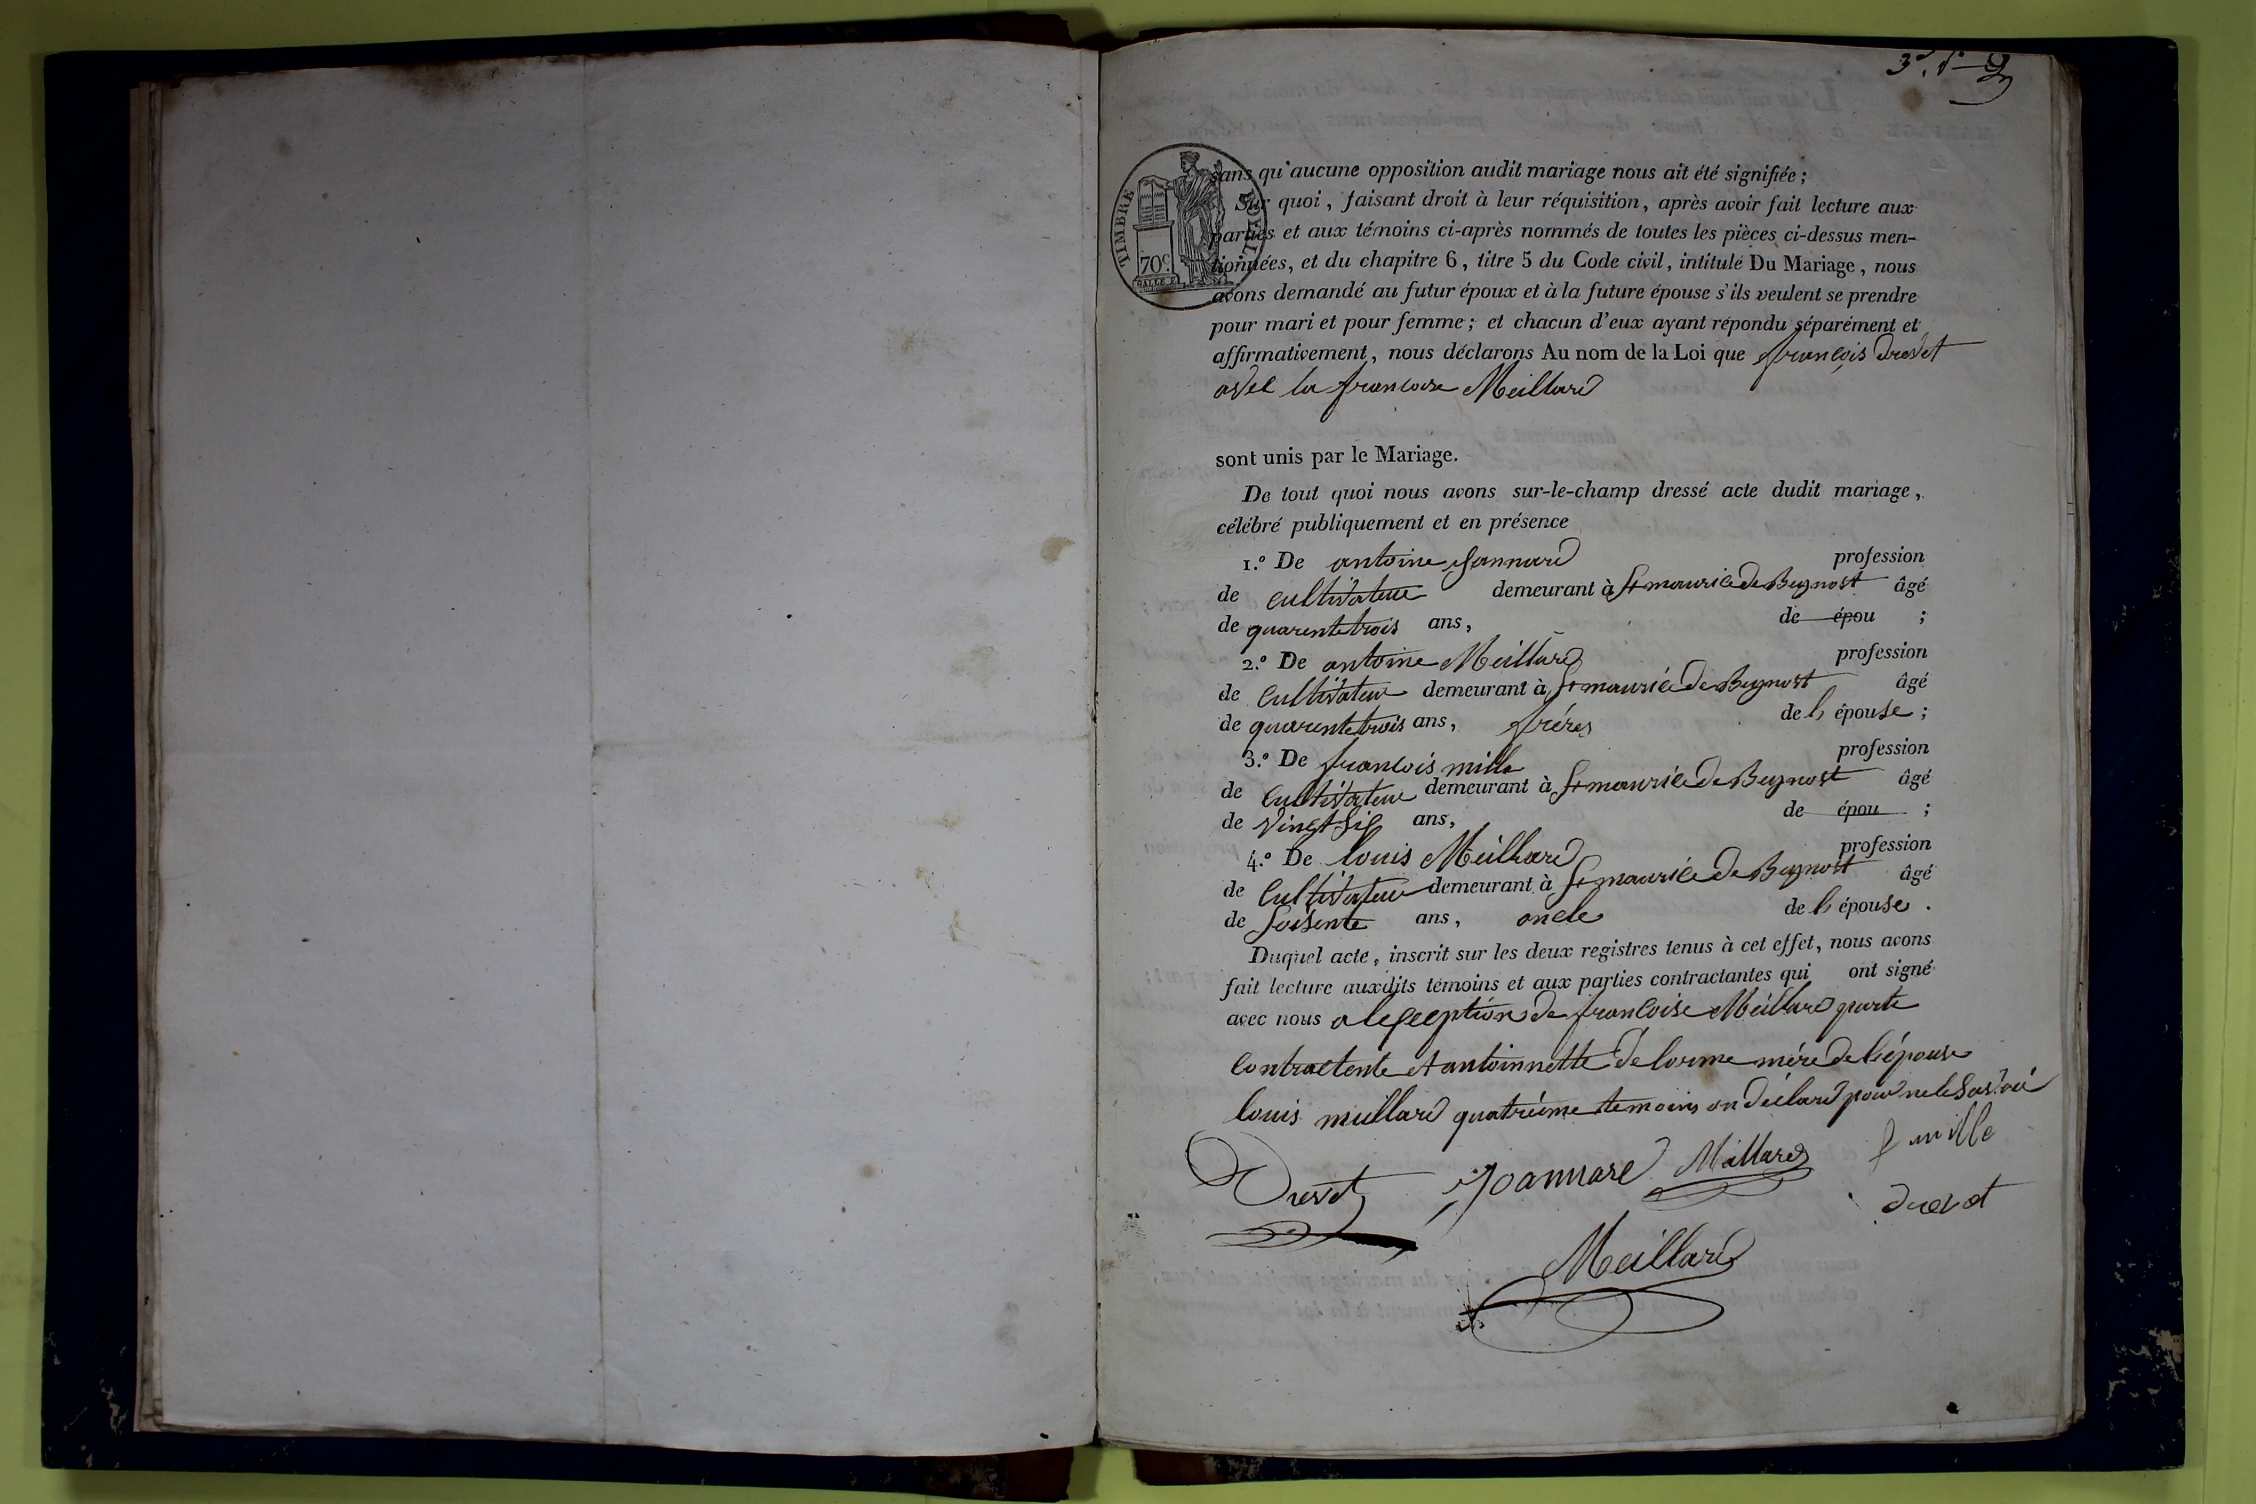 sans qu'aucune opposition audit mariage nous ait été signifiée ;
TIMBRE ROYAL
70c.
Sur quoi, faisant droit à leur réquisition, après avoir fait lecture aux
parties et aux témoins ci-après nommés de toutes les pièces ci-dessus men-
tionnées, et du chapitre 6, titre 5 du Code civil, intitulé Du Mariage, nous
avons demandé au futur époux et à la future épouse s'ils veulent se prendre
pour mari et pour femme; et chacun d'eux ayant répondu séparément et
affirmativement, nous déclarons Au nom de la Loi que françois Drevet
avec la francoise Meillard
sont unis par le Mariage.
De tout quoi nous avons sur-le-champ dressé acte dudit mariage,
célébré publiquement et en présence
1.º De antoine Joannard profession
de cultivateur demeurant à St maurice de Beynost âgé
de quarente trois ans, de épou ;
2.º De antoine Meillard profession
de Cultivateur demeurant à St maurice de Beynost âgé
de quarente trois ans, fréres de l'épouse ;
3.º De francois mille profession
de Cultivateur demeurant à St maurice de Beynost âgé
de Vingt Six ans, de épou ;
4.º De louis Meillard profession
de Cultivateur demeurant à St maurice de Beynost âgé
de Soisente ans, oncle de l'épouse .
Duquel acte, inscrit sur les deux registres tenus à cet effet, nous avons
fait lecture auxdits témoins et aux parties contractantes qui ont signé
avec nous a lexception de francoise Meillard parte
Contractente et antoinnette Delorme mére de l'épouse
louis meillard quatriéme temoins on déclaré pour ne le Savoir
Drevet Joannard Mellard f mille
drevet
Meillard